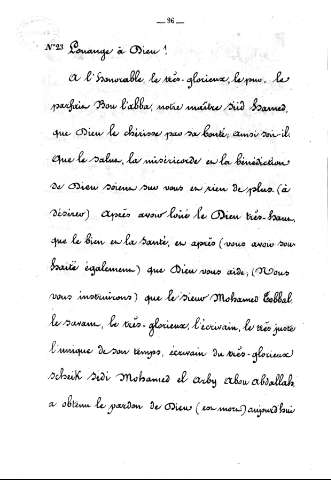 — 96 —
N° 23 Louange à Dieu !
A l'honorable, le très-glorieux, le pur, le
parfait Bou l'abba, notre maître Sid Hamed,
que Dieu le chérisse par sa bonté, ainsi soit-il.
Que le salut, la miséricorde et la bénédiction
de Dieu soient sur vous et rien de plus (à
désirer). Après avoir loué le Dieu très-haut,
que le bien et la santé, et après (vous avoir sou-
haité également) que Dieu vous aide, (Nous
vous instruirons) que le sieur Mohamed Tobbal,
le savant, le très-glorieux, l'écrivain, le très juste
l'unique de son temps, écrivain du très-glorieux
scheik Sidi Mohamed el Arby Abou Abdallah
a obtenu le pardon de Dieu (est mort) aujourd'hui